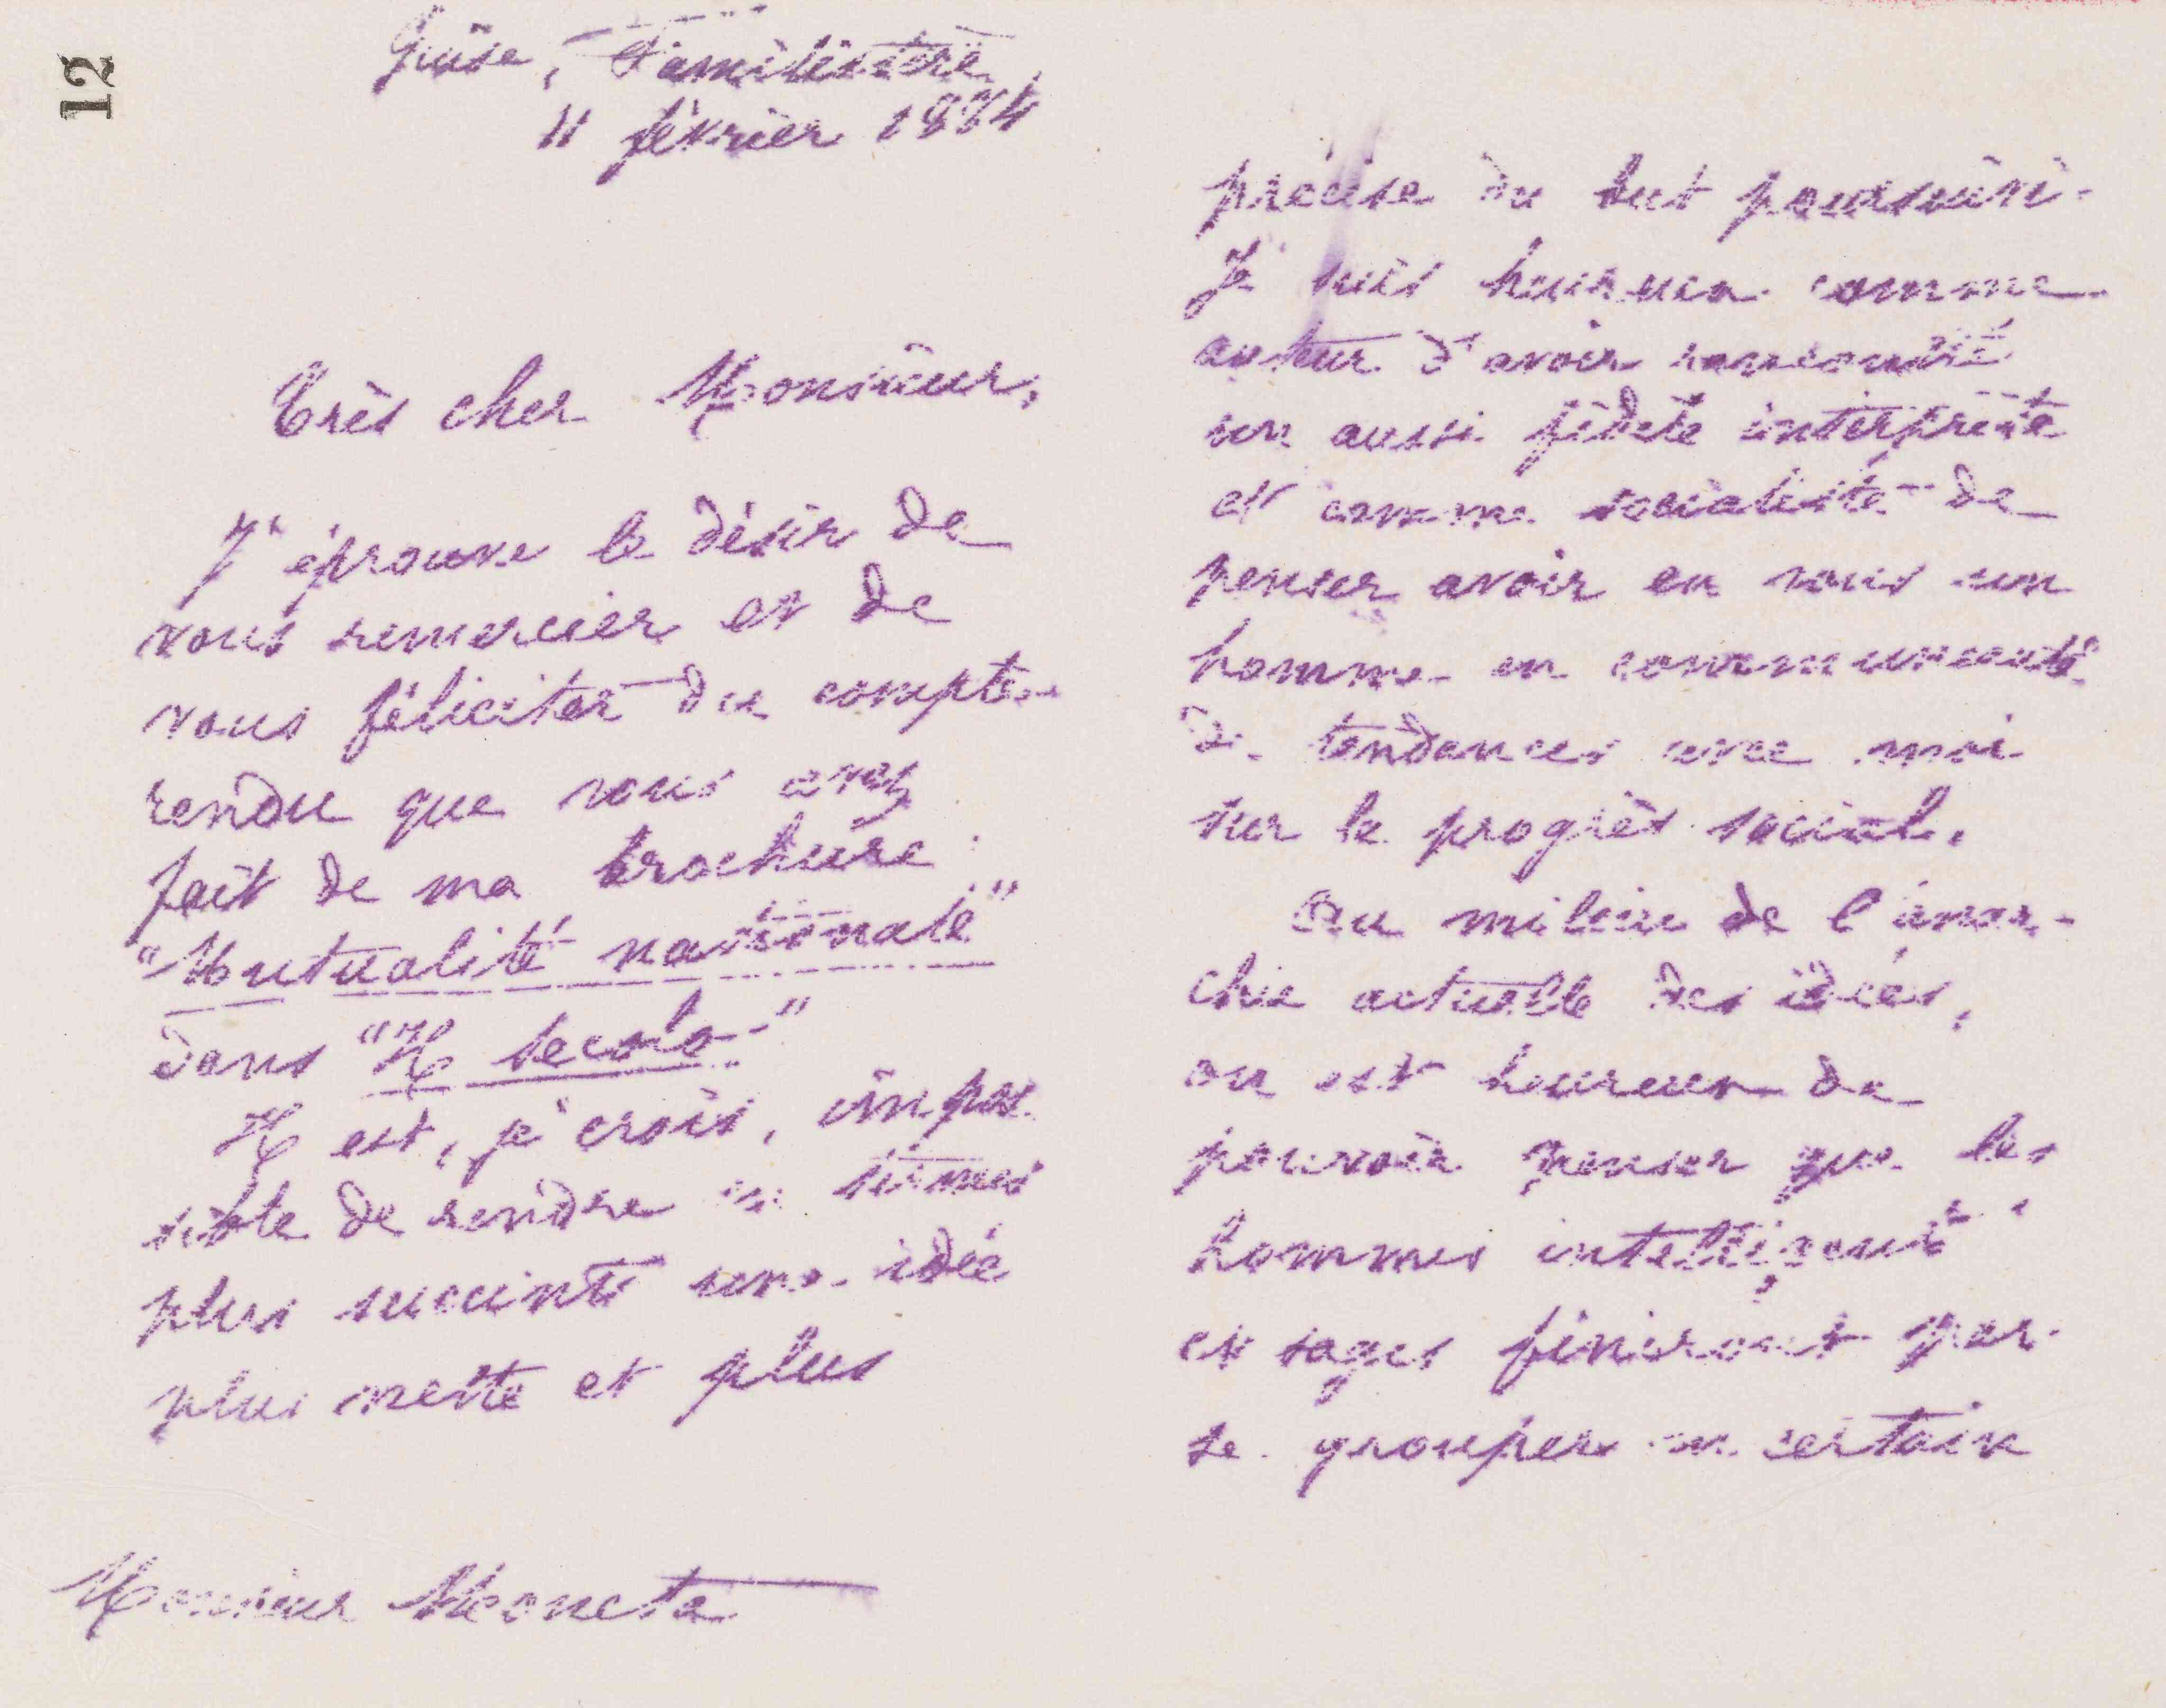 12
Guise, Familistère
11 février 1884
Très cher Monsieur,
J'éprouve le désir de
vous remercier et de
vous féliciter du compte-
rendu que vous avez
fait de ma brochure :
"Mutualité nationale"
dans "Il Secolo"
Il est, je crois, impos
sible de rendre en termes
plus succints une idée
plus nette et plus
Monsieur Moneta
précise du but poursuivi.
Je suis heureux comme
auteur d'avoir rencontré
un aussi fidèle interprète
et comme socialiste de
penser avoir en vous un
homme en communauté
de tendances avec moi
sur le progrès social.
Au milieu de l'anar-
chie actuelle des idées,
on est heureux de
pouvoir penser que les
hommes intelligents
et sages finiront par
se grouper en certain